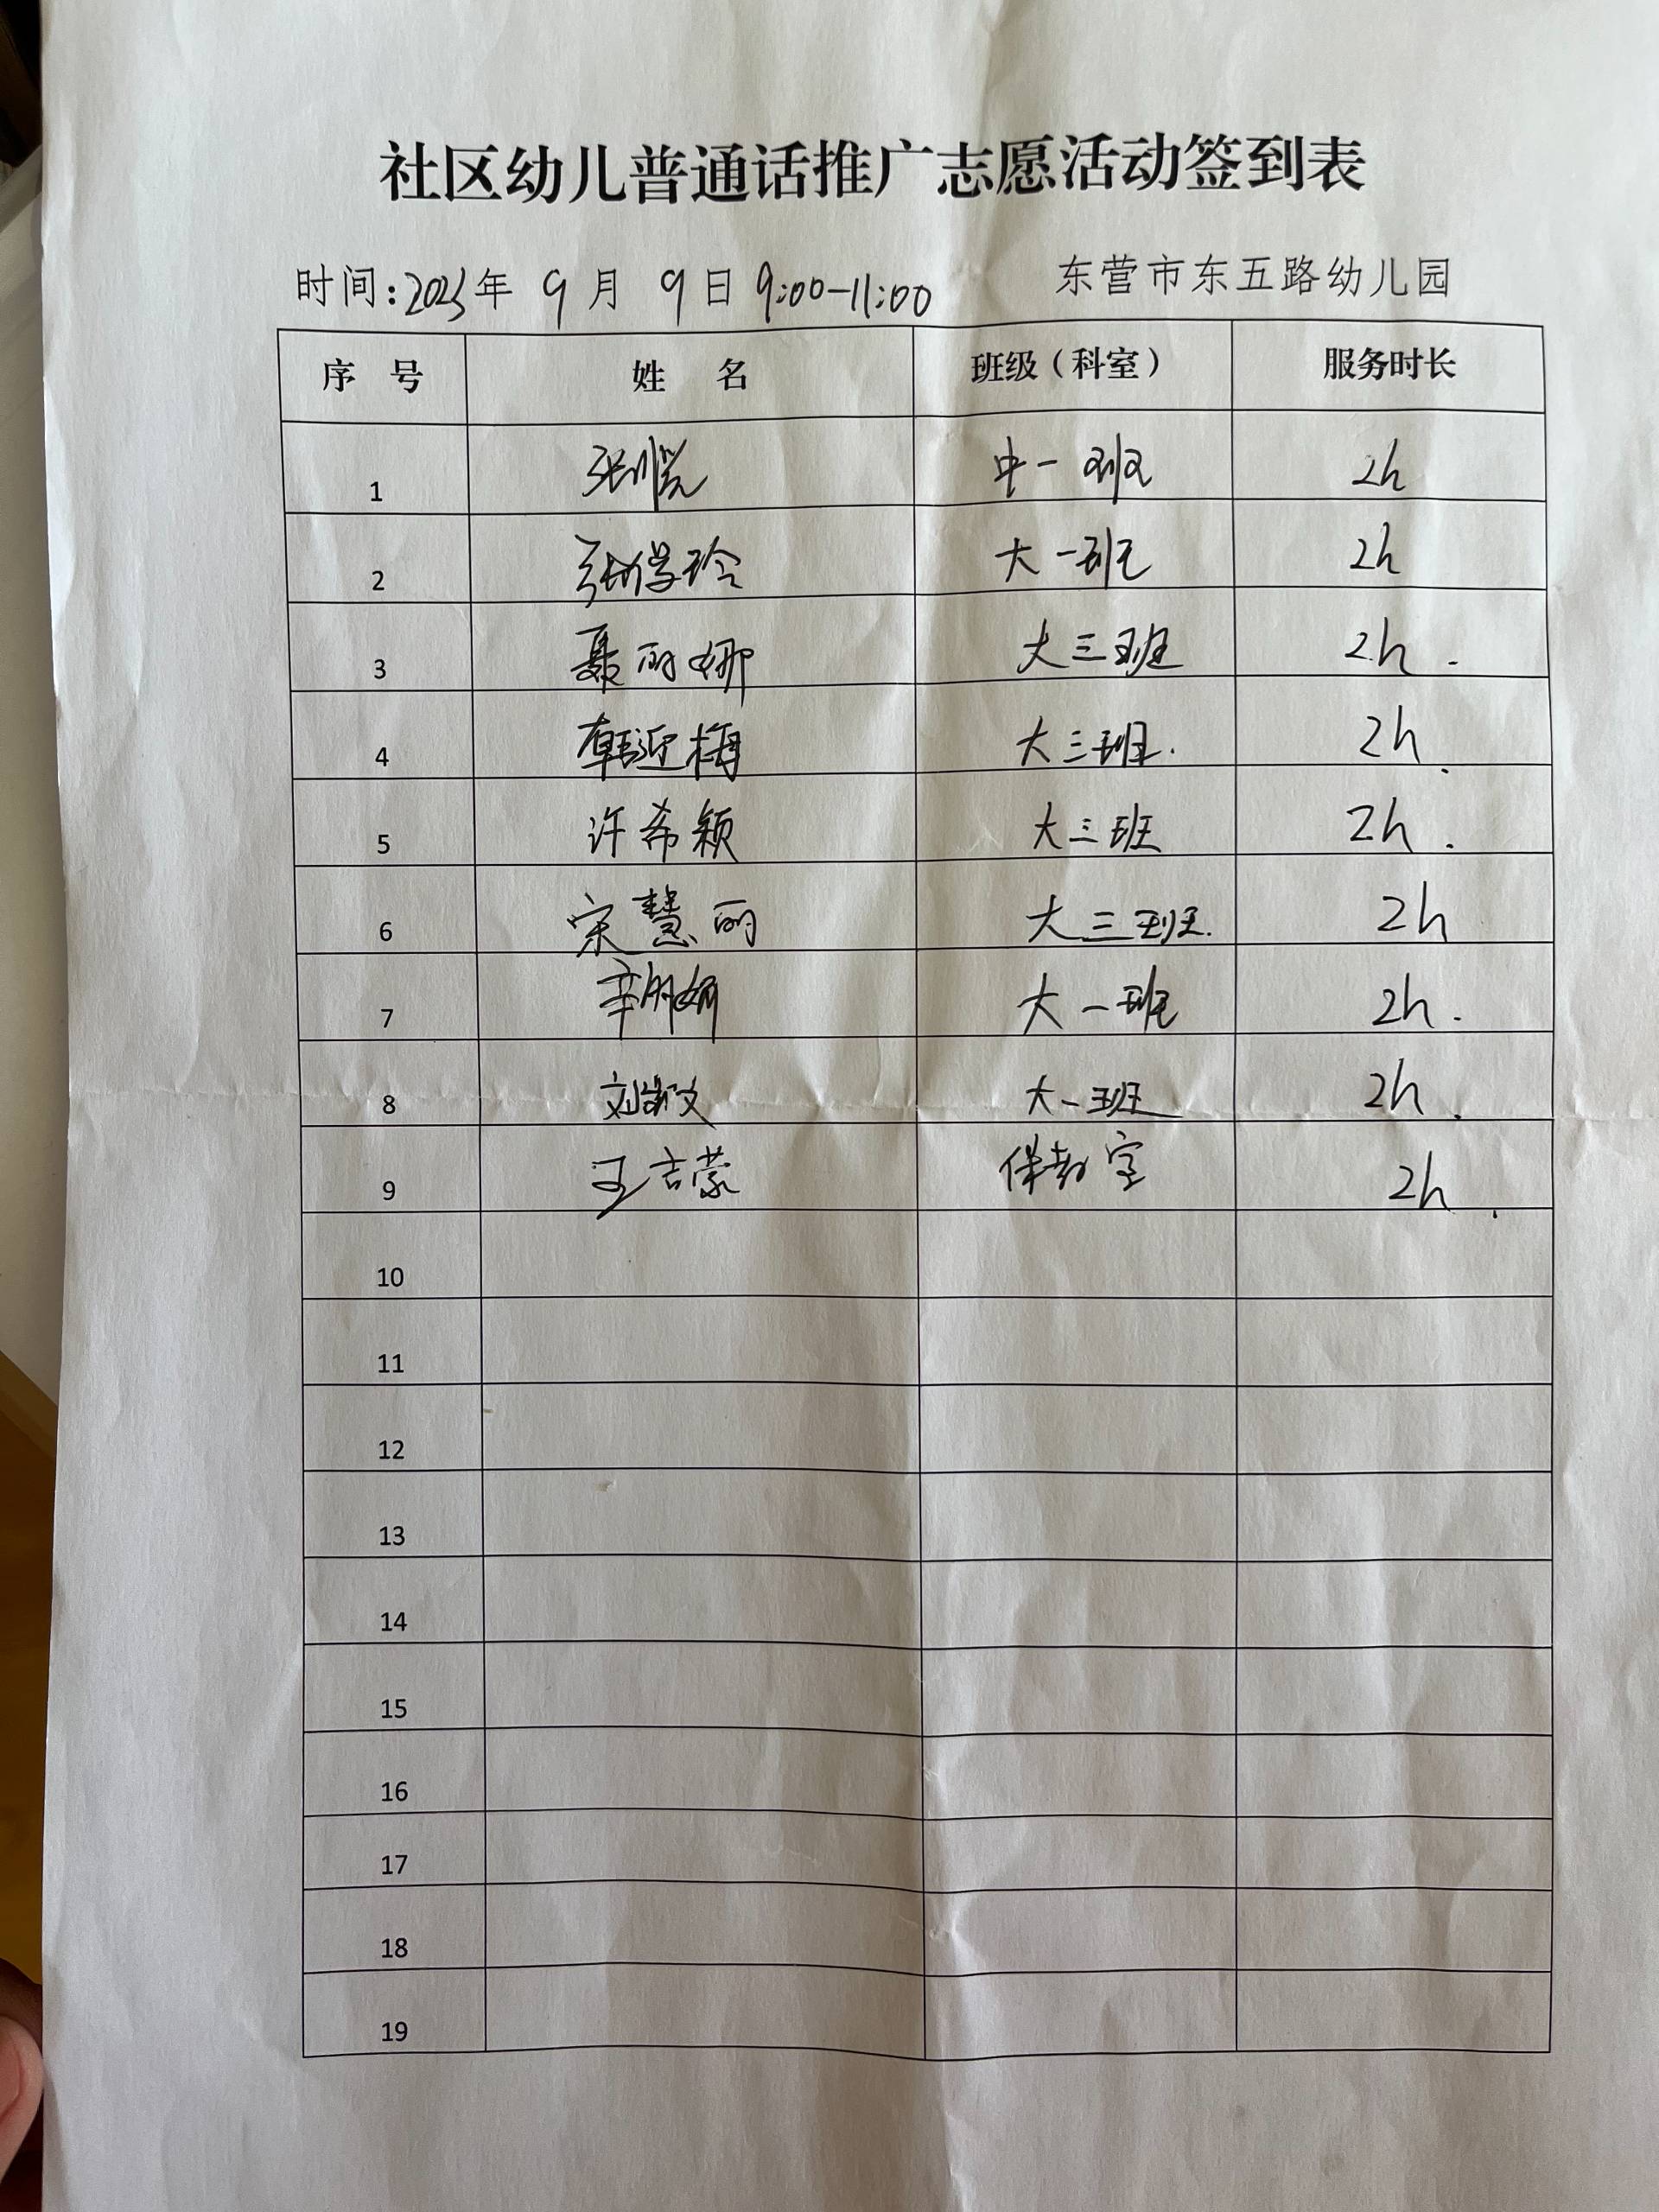 社区幼儿普通话推广志愿活动签到表
时间:2023年 9月 9日 9:00-11:00 东营市东五路幼儿园
序 号 姓 名 班级(科室) 服务时长
1 张 中一班 2h
2 张学玲 大一班 2h
3 聂丽娜 大三班 2h.
4 韩迎梅 大三班. 2h.
5 许希颖 大三班 2h.
6 宋慧丽 大三班. 2h
7 辛 大一班 2h.
8 刘 大一班 2h.
9 王吉蒙 保教室 2h.
10
11
12
13
14
15
16
17
18
19